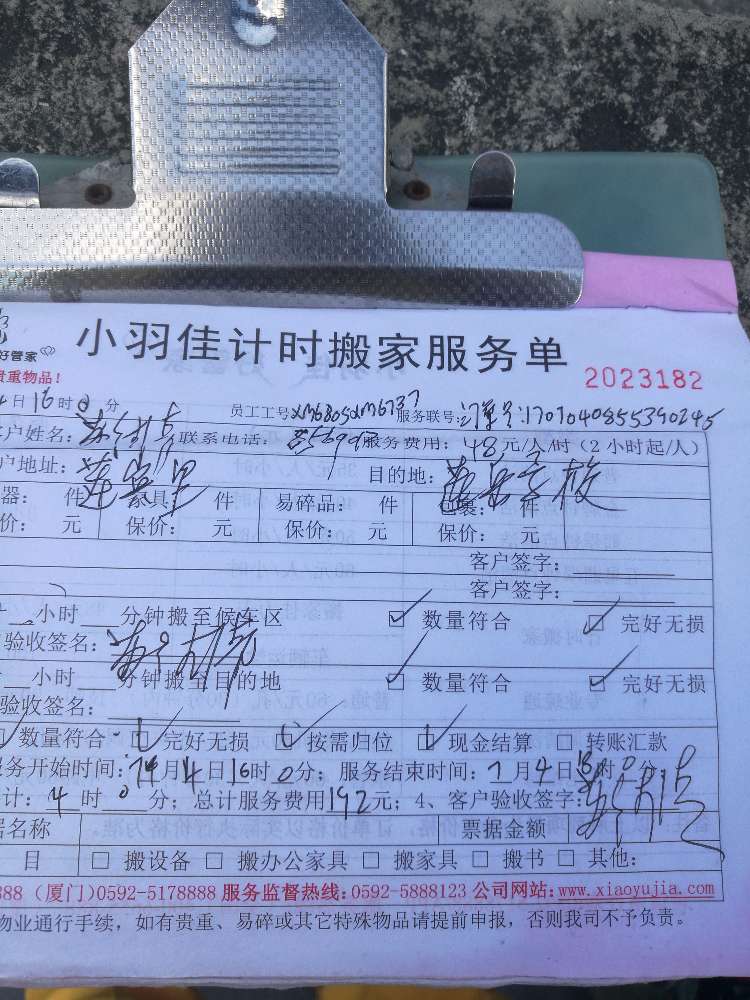 小羽佳计时搬家服务单
好管家
贵重物品!
2023182
4日16时0分 员工工号XM6805 XM6737 服务联号:订单号:1707040855390245
户姓名: 联系电话: 服务费用:48元/人/时(2小时起/人)
户地址:莲岳里 目的地:
器: 件 家具: 件 易碎品: 件 包裹: 件
价: 元 保价: 元 保价: 元 保价: 元
客户签字:
客户签字:
小时 分钟搬至候车区 ☑ 数量符合 ☑ 完好无损
验收签名:
小时 分钟搬至目的地 ☑ 数量符合 ☑ 完好无损
验收签名:
☑ 数量符合 ☑ 完好无损 ☑ 按需归位 ☑ 现金结算 □ 转账汇款
务开始时间:7月4日16时0分;服务结束时间:7月4日18时0分;
计:4时0分;总计服务费用192元;4、客户验收签字:
据名称 票据金额
目 □ 搬设备 □ 搬办公家具 □ 搬家具 □ 搬书 □ 其他:
888(厦门)0592-5178888 服务监督热线:0592-5888123 公司网站:www.xiaoyujia.com
物业通行手续,如有贵重、易碎或其它特殊物品请提前申报,否则我司不予负责。